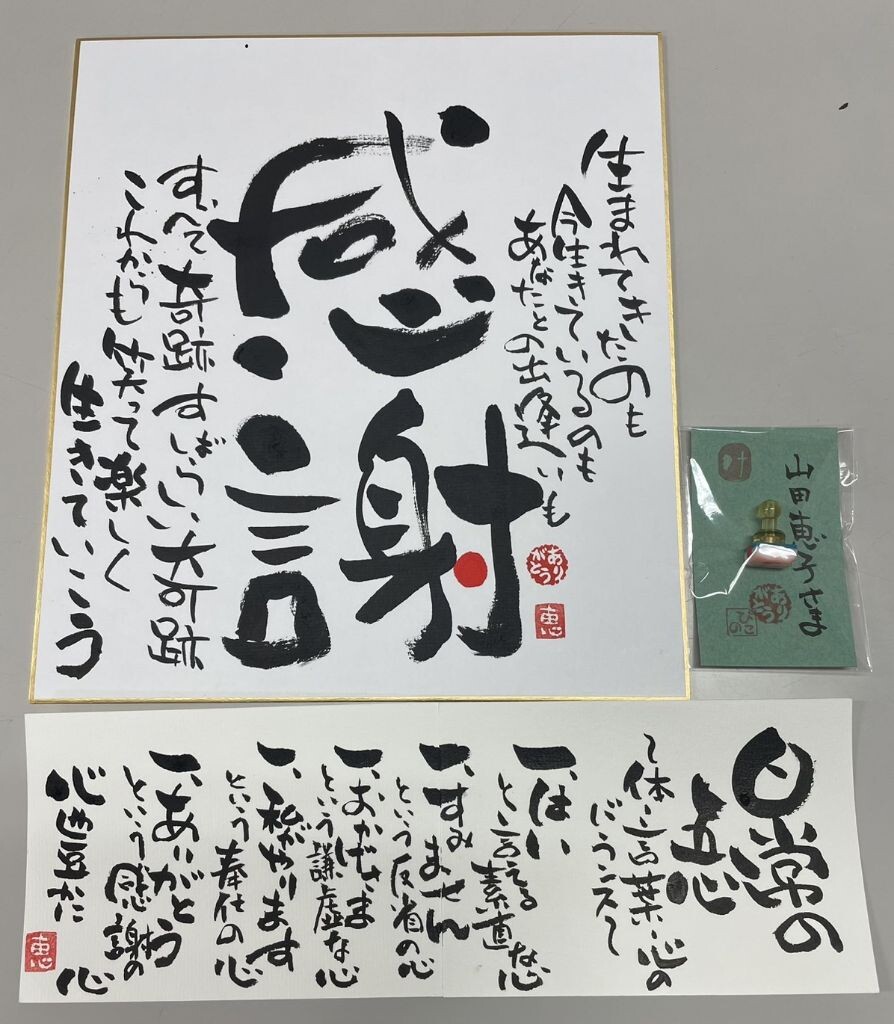 生まれてきたのも
今生きているのも
あなたとの出逢いも
ありがとう
恵
感謝
すべて奇跡 すばらしい奇跡
これからも笑って楽しく
生きていこう
叶
山田恵子さま
ありがとう
日常の
五心
〜体・言葉・心の
バランス〜
一、はい
と言える素直な心
一、すみません
という反省の心
一、おかげさま
という謙虚な心
一、私がやります
という奉仕の心
一、ありがとう
という感謝の心
心豊かに
恵